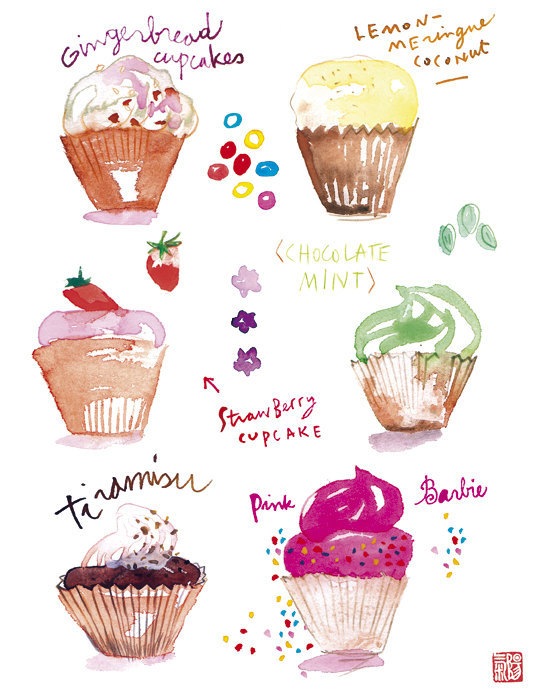 Gingerbread
cupcakes
LEMON-
MERINGUE
COCONUT
<CHOCOLATE
MINT>
StrawBerry
CUPCAKE
tiramisu
Pink Barbie